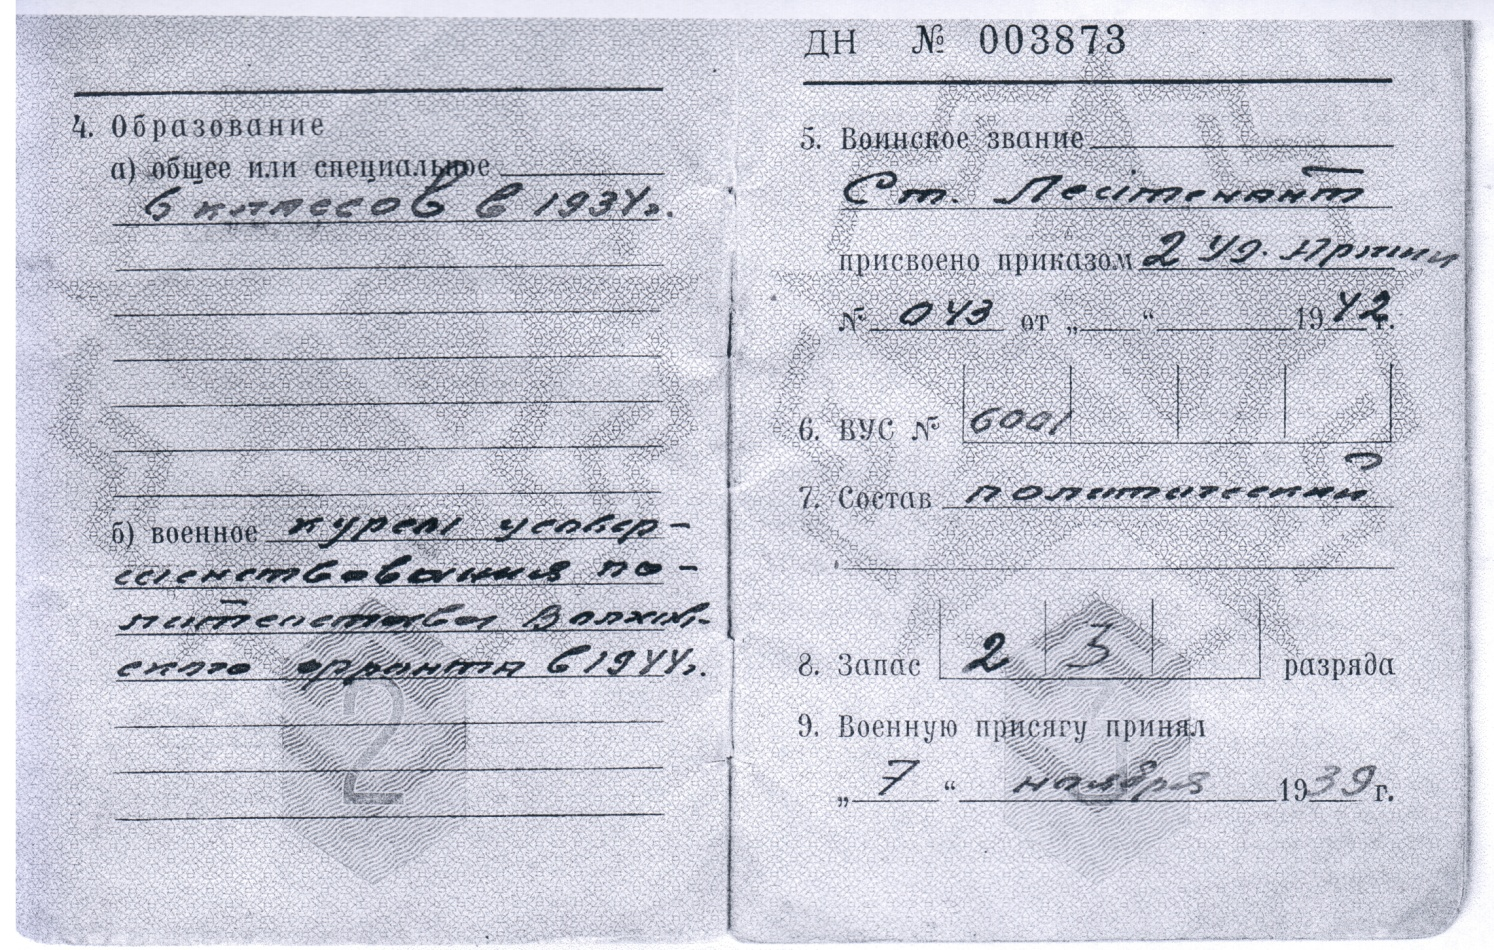 4. Образование
а) общее или специальное
6 классов в 1934г.
б) военное курсы усовер-
шенствования по-
литсостава Волхов-
ского фронта в 1944г.
2
ДН № 003873
5. Воинское звание
Ст. Лейтенант
присвоено приказом 2 Уд. Армии
№ 043 от „ “ 1942г.
6. ВУС № 6001
7. Состав политический
8. Запас 2 3 разряда
9. Военную присягу принял
„ 7 “ ноября 1939 г.